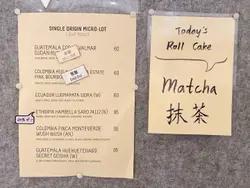 SINGLE ORIGIN MICRO-LOT
GUATEMALA
60
COLOMBIA
ESTATE
PINK BOURBON
60
ECUADOR LUGMAPATA SIDRA (W)
80
ETHIOPIA HAMBELLA
95
COLOMBIA FINCA MONTEVERDE
WUSH WUSH (W)
85
GUATEMALA HUEHUETENANGO
SECRET GEISHA (W)
85
Today's
Roll Cake
Matcha
抹茶